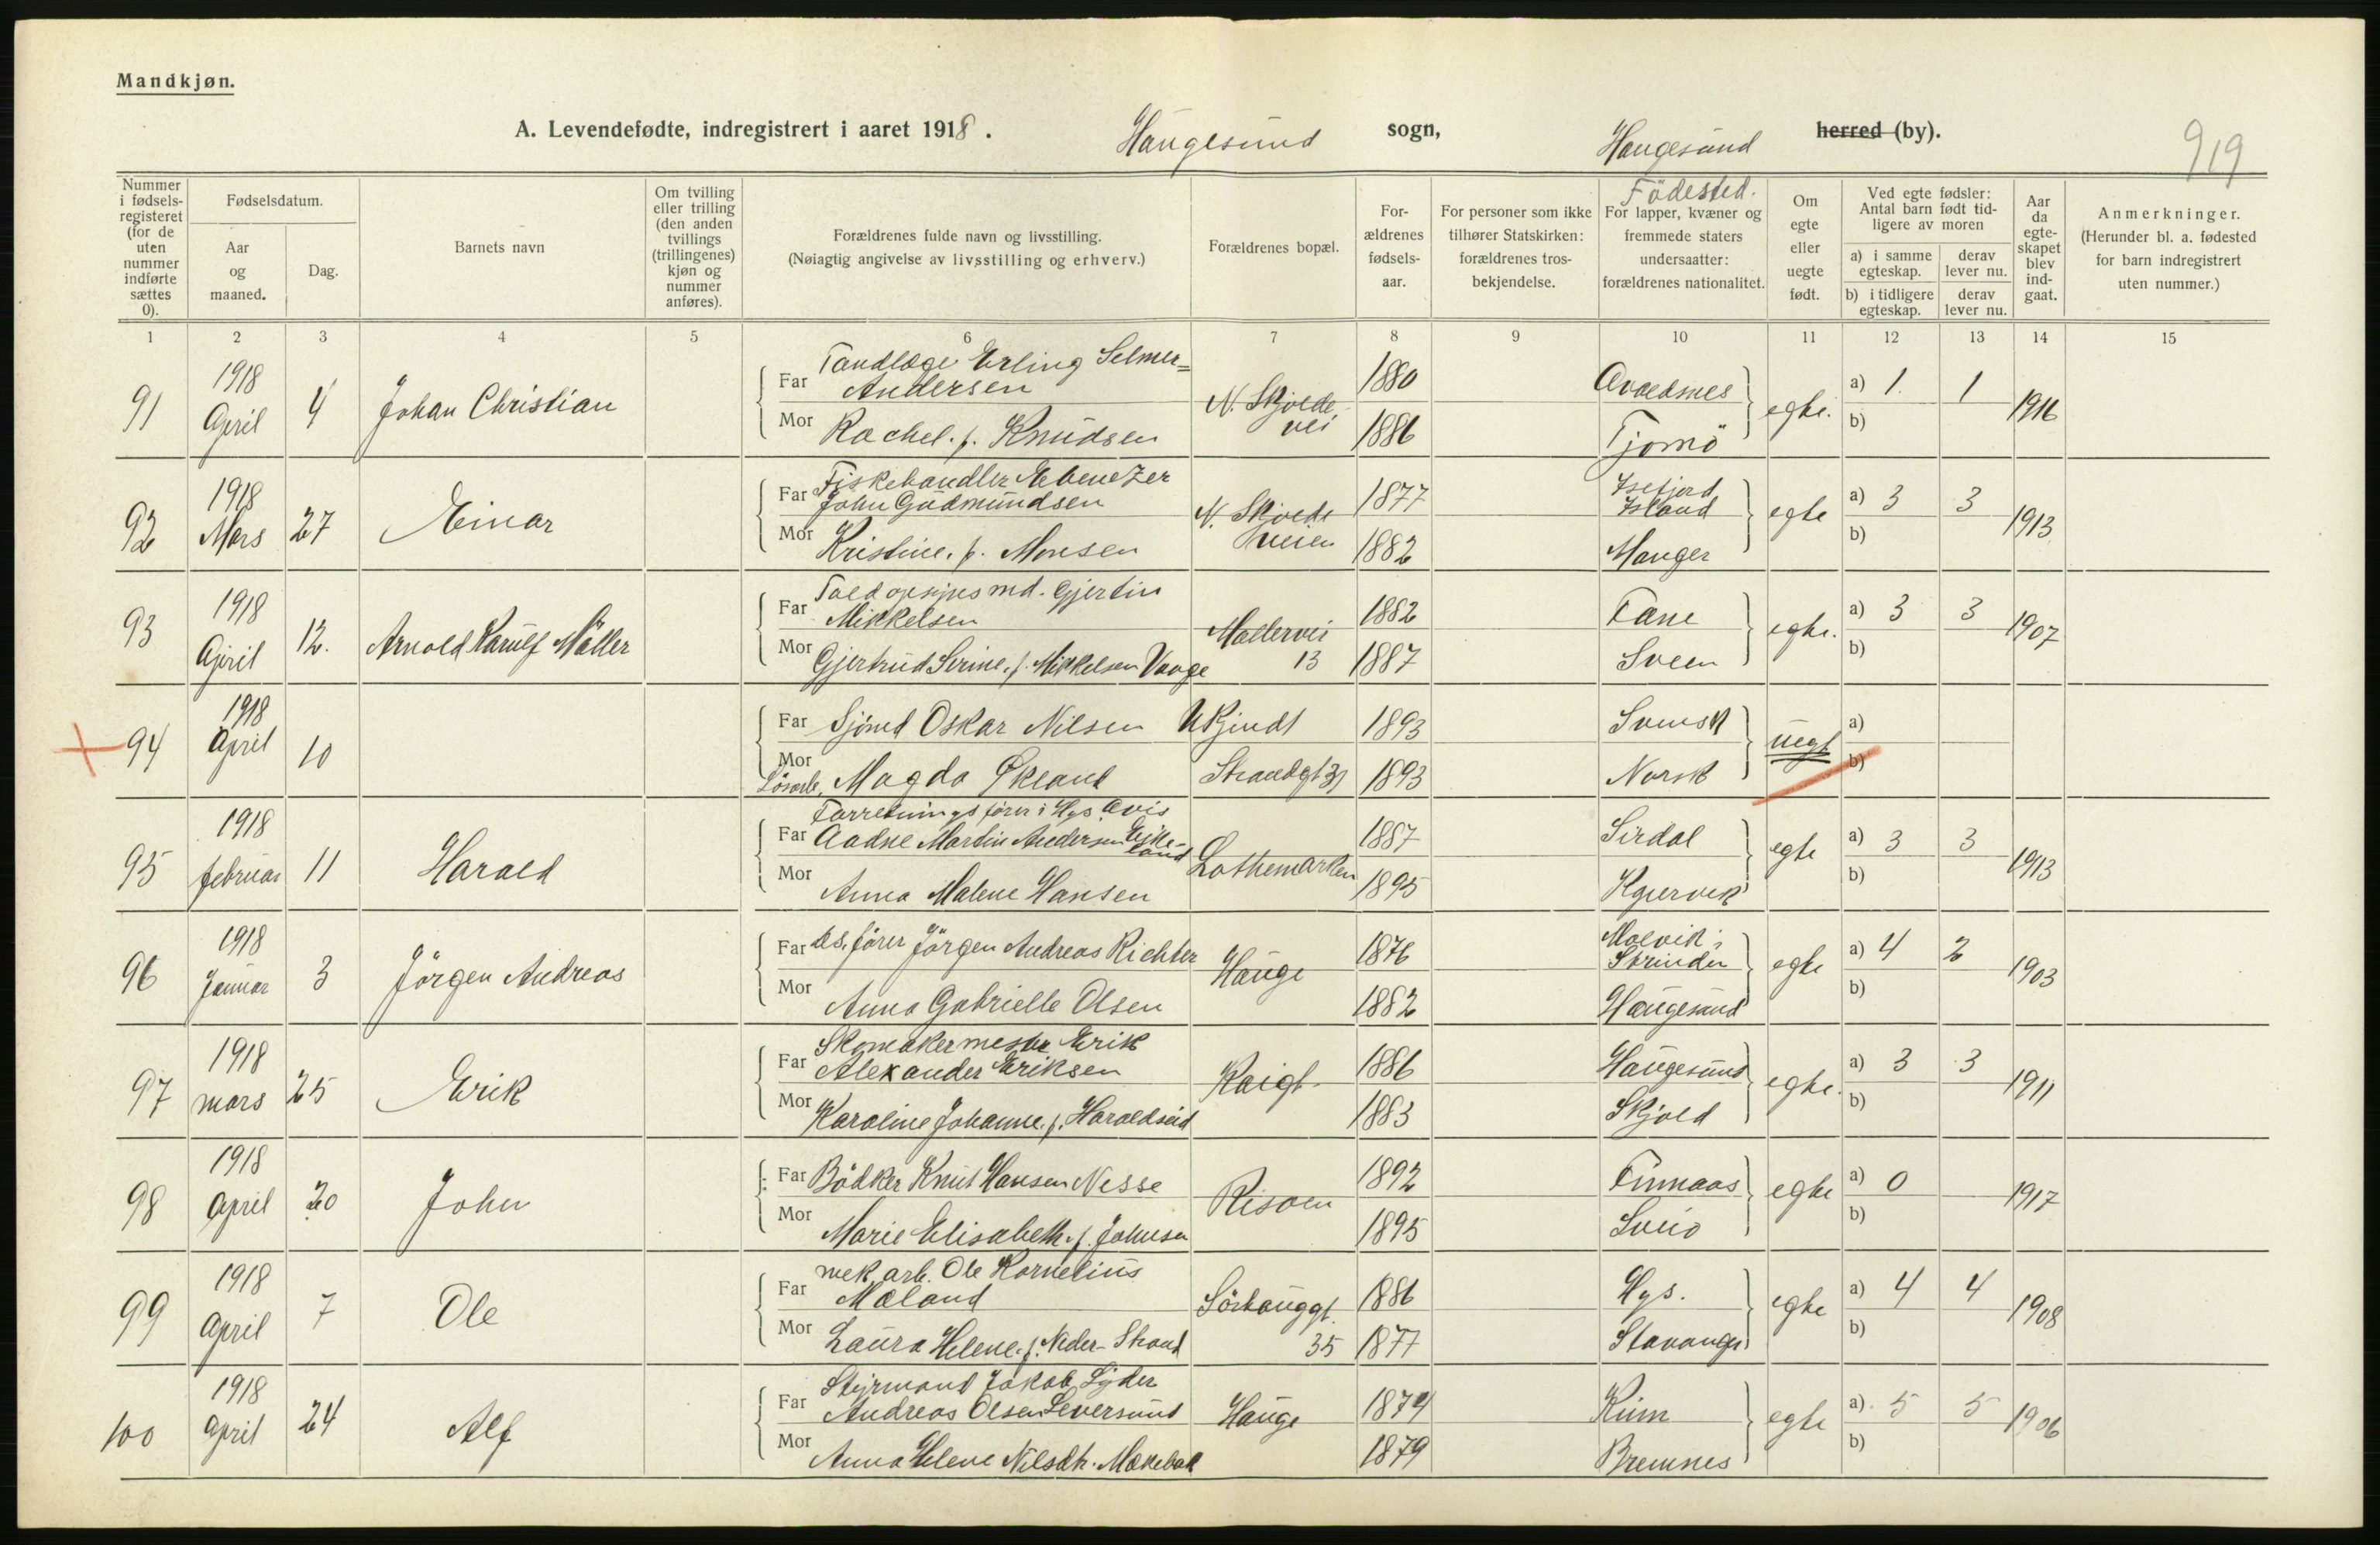 Mandkjøn.
A. Levendefødte, indregistrert i aaret 1918. Haugesund sogn, Haugesund herred (by). 919
Nummer i fødselsregisteret (for de uten nummer indførte sættes 0).
Fødselsdatum.
Aar og maaned.
Dag.
Barnets navn
Om tvilling eller trilling (den anden tvillings (trillingenes) kjøn og nummer anføres).
Forældrenes fulde navn og livsstilling.
(Nøiagtig angivelse av livsstilling og erhverv.)
Forældrenes bopæl.
Forældrenes fødselsaar.
For personer som ikke tilhører Statskirken: forældrenes trosbekjendelse.
Födested.
For lapper, kvæner og fremmede staters undersaatter: forældrenes nationalitet.
Om egte eller uegte født.
Ved egte fødsler: Antal barn født tidligere av moren
a) i samme egteskap. derav lever nu.
b) i tidligere egteskap. derav lever nu.
Aar da egteskapet blev indgaat.
Anmerkninger.
(Herunder bl. a. fødested for barn indregistrert uten nummer.)
1 2 3 4 5 6 7 8 9 10 11 12 13 14 15
91 1918 April 4 Johan Christian
Far Tandlæge Erling Selmer=
Andersen 1880 Avaldsnes
Mor Rachel. f. Knudsen N. Skjolde vei 1886 Tjømö
egte. a) 1. 1 b) 1916
92 1918 Mars 27 Einar
Far Fiskehandler Ebenezer
John Gudmundsen 1877 Isefjord Island
Mor Kristine. f. Monsen 1882 Manger
egte a) 3 3 b) 1913
93 1918 April 12. Arnold
Far Toldopsynsmd. Gjertin
Mikkelsen 1882 Fane
Mor Gjertrud Serine. f. Mikkelsen Vaage 13 1887 Sveen
egte. a) 3 3 b) 1907
94 1918 April 10
Far Oskar Nilsen Ukjendt 1893 Svensk
Mor Magda Økland Strandgt 1893 Norsk
uegt a) b)
95 1918 februar 11 Harald
Forretningsfører i Hgs. Avis
Far Aadne Martin Andersen Eikeland 1887 Sirdal
Mor Anna Malene Hansen Lothemarken 1895
egte a) 3 3 b) 1913
96 1918 Januar 3 Jörgen Andreas
Far Jörgen Andreas Richter 1876 Malvik i Strinden
Mor Anna Gabrielle Olsen Hauge 1882 Haugesund
egte a) 4 2 b) 1903
97 1918 mars 25 Erik
Far Skomakermester Erik
Alexander Eriksen 1886 Haugesund
Mor Karoline Johanne. f. Haraldseid Kaigt. 1883 Skjold
egte. a) 3 3 b) 1911
98 1918 April 20 John
Far Bödker Knut Hansen Nesse 1892 Finnaas
Mor Marie Elisabeth. f. Johnsen Risøen 1895 Sveio
egte a) 0 b) 1917
99 1918 April 7 Ole
Far mek. arb. Ole Kornelius
Mæland 1886 Hgs.
Mor Laura Helene. f. Neder-Strand Sörhauggt. 35 1877 Stavanger
egte a) 4 4 b) 1908
100 1918 April 24 Alf
Far Styrmand Jakob Lyder
Andreas Olsen Leversund 1874
Mor Anna Helene Nilsdtr. Hauge 1879 Bremnes
egte a) 5 5 b) 1906